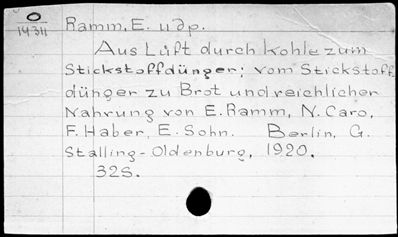 O
14311
Ramm, E. udp.
Aus Luft durch Kohle zum
Stickstoffdünger; vom Stickstoff
dünger zu Brot und reichlicher
Nahrung von E. Ramm, N. Caro,
F. Haber, E. Sohn. Berlin, G.
Stalling-Oldenburg, 1920.
32S.